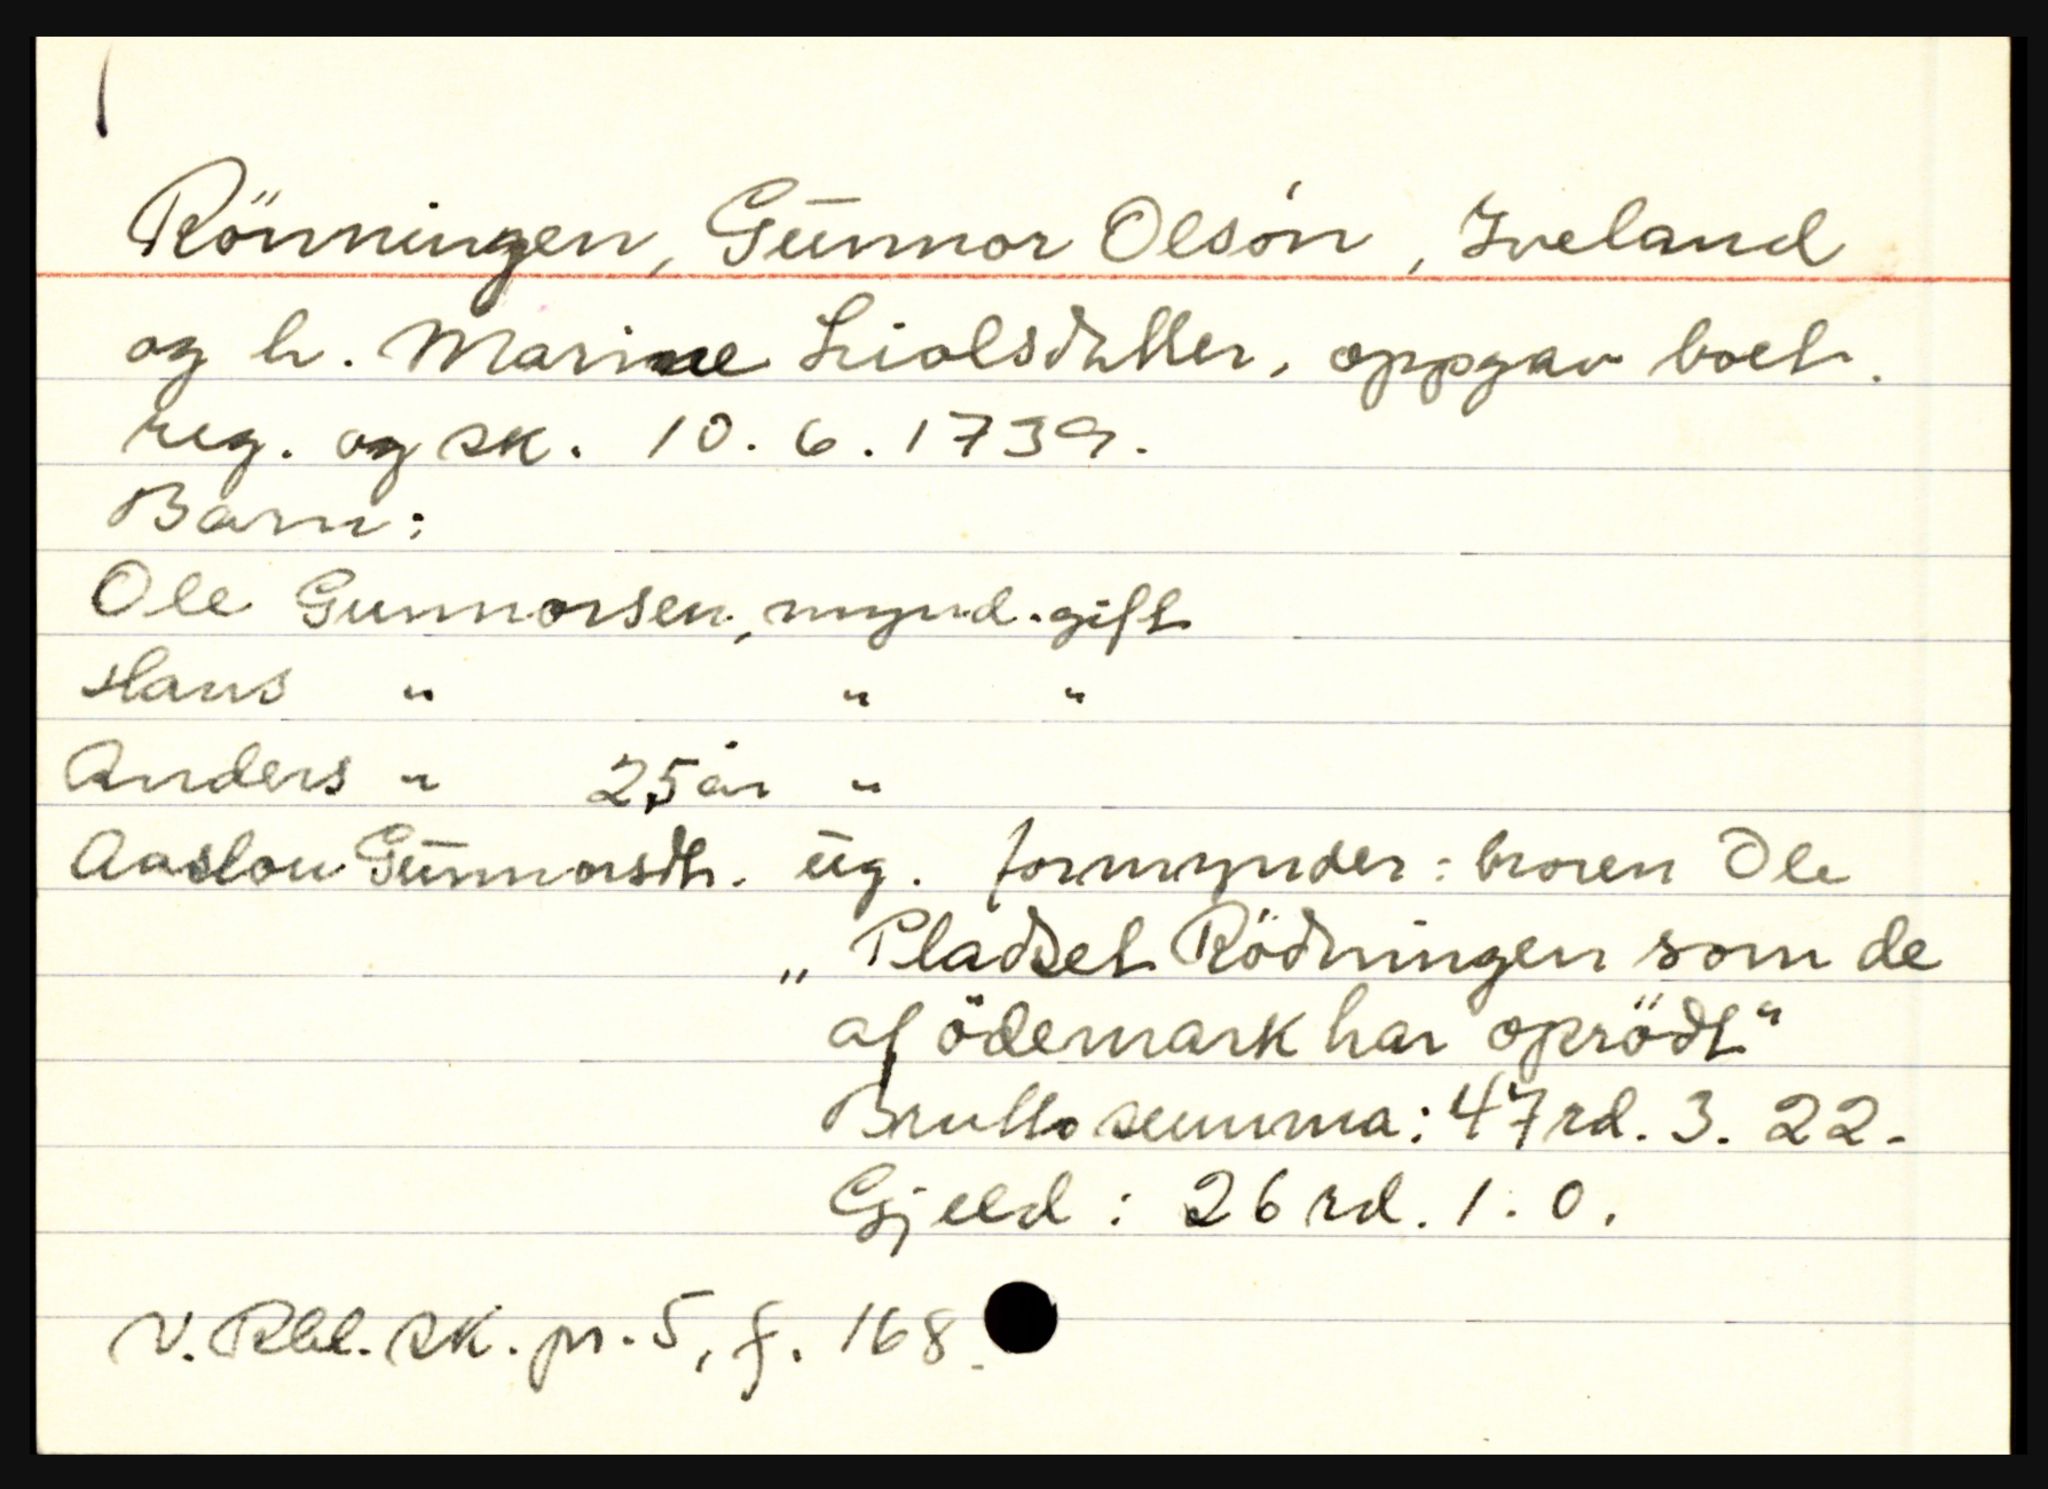 Rönningen, Gunnor Olsøn, Iveland
og h. Marine Liolsdatter, oppgav boet.
reg. og sk. 10.6.1739.
Barn:
Ole Gunnorsen, mynd. gift
Hans " " "
Anders " 25 år "
Aaslou Gunnorsdtr. ug. formynder: broren Ole
„Pladset Rödningen som de
af ödemark har oprödt"
Brutto summa: 47 rd. 3. 22.
Gjeld: 26 rd. 1. 0.
V. Rbl. sk. pr. 5, f. 168.